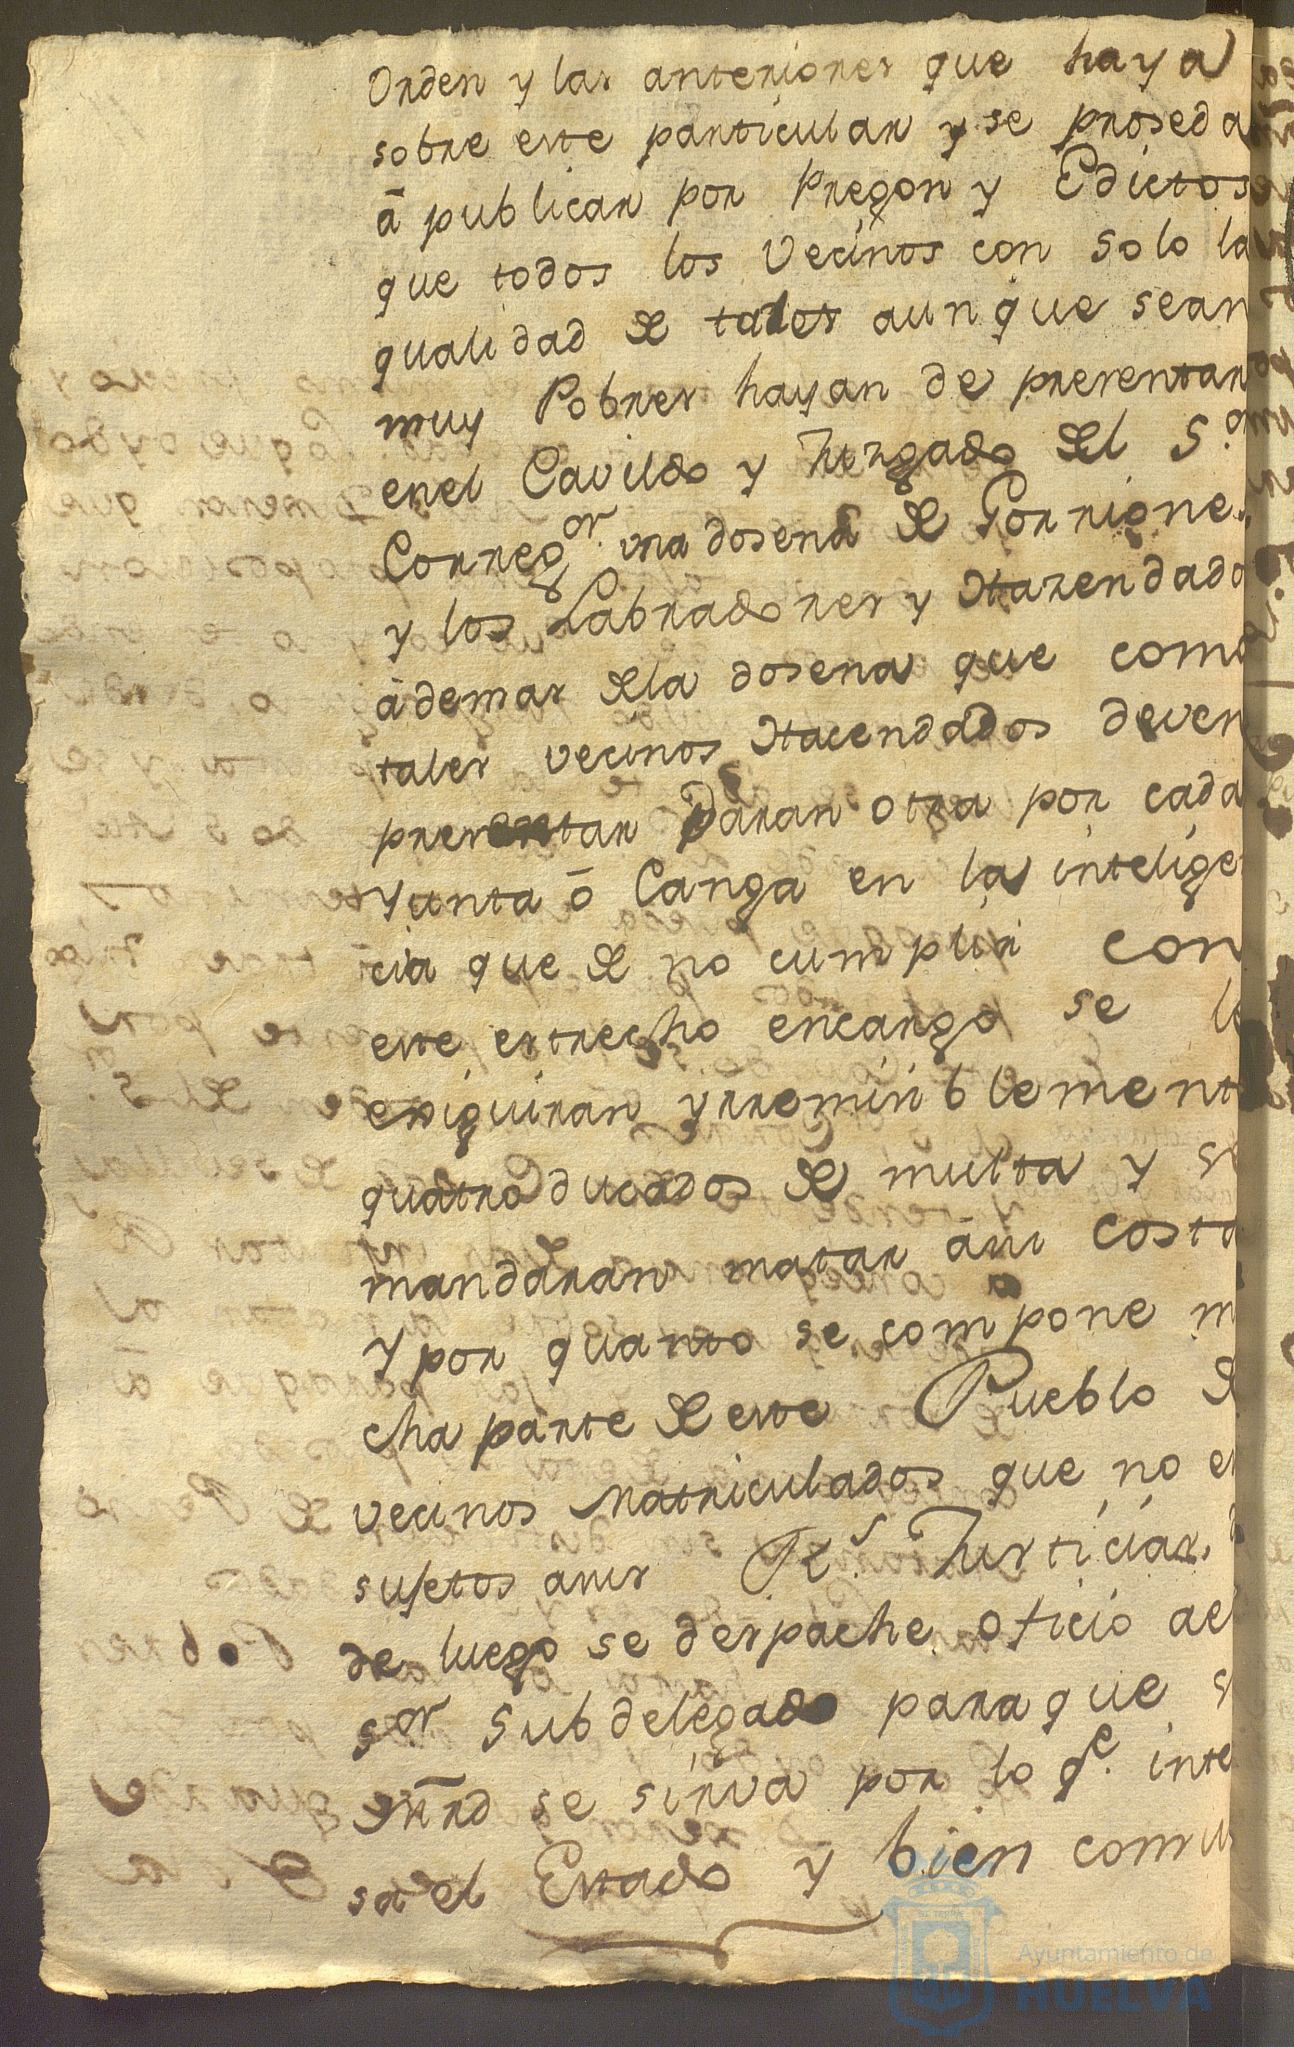 Orden y las anteriores que haya
sobre este particular y se proseda
â publicar por Pregon y Edictos
que todos los Vecinos con solo la
qualidad de tales aunque sean
muy Pobres hayan de presentar
enel Cavildo y Juzgado del S.or
Correg.or una dosena de Gorriones
y los Labradores y Hazendado
âdemas dela dosena que como
tales vecinos Hacendados deven
presentar Daran otra por cada
Yunta ô Canga en la intelige
cia que de no cumplir con
este estrecho encargo se l
exiguiran yrremisiblement
quatro ducados de multa y s
mandaran matar âsu costa
Y por quanto se compone m
cha parte de este Pueblo d
vecinos Matriculados que no e
sujetos a mis R.s Justicias,
de luego se despache oficio ael
sor Subdelegado paraque s
mrd se sirva por lo q.e inte
sa el Estado y bien comu
Ayuntamiento de
HUELVA